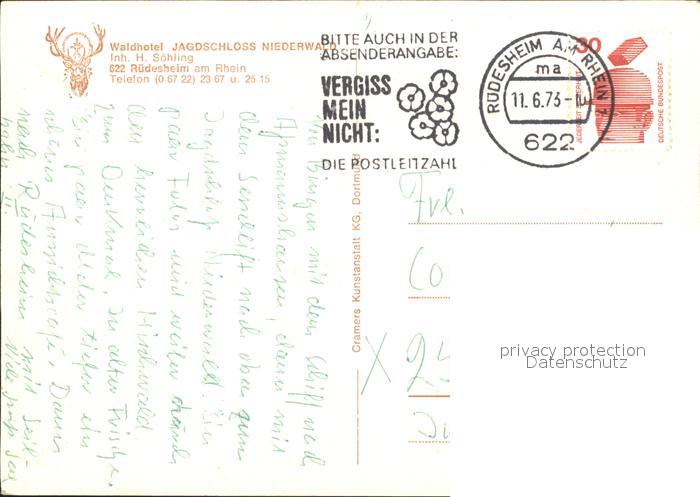 Waldhotel JAGDSCHLOSS NIEDERWALD
Inh. H. Söhling
622 Rüdesheim am Rhein
Telefon (0 67 22) 23 67 u. 25 15
BITTE AUCH IN DER
ABSENDERANGABE:
VERGISS
MEIN
NICHT:
DIE POSTLEITZAHL
RÜDESHEIM AM RHEIN 1
ma
11.6.73-
622
30
JEDERZEIT SICHERHEIT
DEUTSCHE BUNDESPOST
Cramers Kunstanstalt KG, Dortmund
Bingen mit dem Schiff nach
Assmannshausen, dann mit
dem Sessellift nach oben zum
Jagdschloss Niederwald. Ein
paar Fotos und weiter durch
den herrlichen Mischwald
zum Denkmal. In alter Frische.
Ein paar Meter tiefer ein
Dann
nach Rüdesheim mit Seil-
Frl.
Co
X
privacy protection
Datenschutz